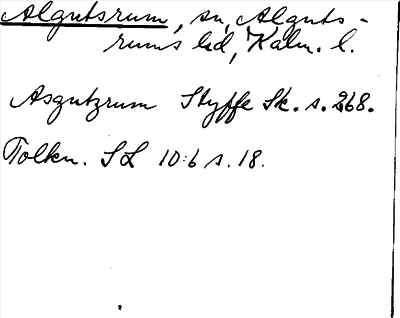 Algutsrum, sn, Alguts-
rums hd, Kalm. l.
Asgutzrum Styffe Sk. s. 268.
Tolkn. SL 10:6 s. 18.